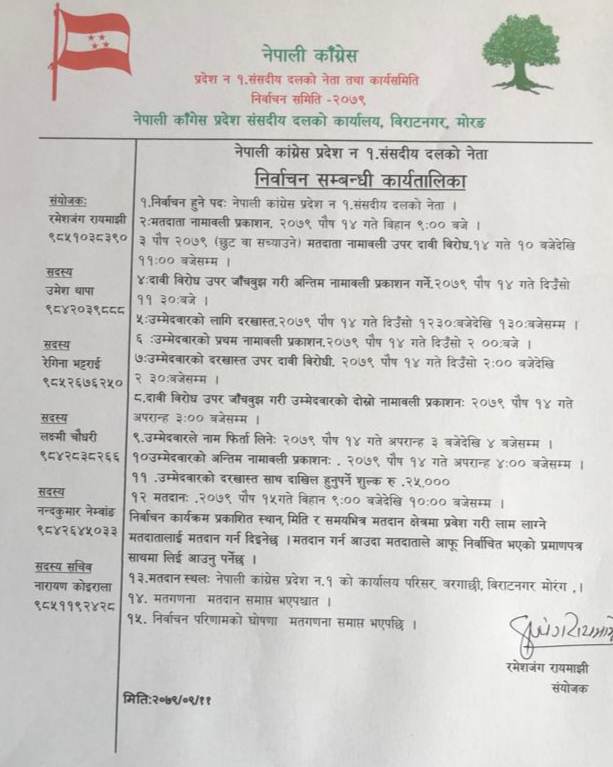 नेपाली काँग्रेस
प्रदेश न १.संसदीय दलको नेता तथा कार्यसमिति
निर्वाचन समिति -२०७९
नेपाली काँगेस प्रदेश संसदीय दलको कार्यालय, विराटनगर, मोरङ
नेपाली कांग्रेस प्रदेश न १.संसदीय दलको नेता
निर्वाचन सम्बन्धी कार्यतालिका
संयोजक:
रमेशजंग रायमाझी
९८५१०३८३९०
सदस्य
उमेश थापा
९८४२०३९८८८
सदस्य
रेगिना भट्टराई
९८५२६७६२५०
सदस्य
लक्ष्मी चौधरी
९८४२८३८२६६
सदस्य
नन्दकुमार नेम्बाङ
९८४२६४५०३३
सदस्य सचिव
नारायण कोइराला
९८५११९२४२८
१.निर्वाचन हुने पदः नेपाली कांग्रेस प्रदेश न १.संसदीय दलको नेता ।
२ः.मतदाता नामावली प्रकाशन. २०७९ पौष १४ गते बिहान ९ः०० बजे ।
३ पौष २०७९ (छुट वा सच्याउने) मतदाता नामावली उपर दावी विरोध.१४ गते १० बजेदेखि
११ः०० बजेसम्म ।
४ः.दावी विरोध उपर जाँचबुझ गरी अन्तिम नामावली प्रकाशन गर्ने.२०७९ पौष १४ गते दिउँसो
११ ३०ः.बजे ।
५ः.उम्मेदवारको लागि दरखास्त.२०७९ पौष १४ गते दिउँसो १२३०ः.बजेदेखि १३०ः.बजेसम्म ।
६ :.उम्मेदवारको प्रथम नामावली प्रकाशन.२०७९ पौष १४ गते दिउँसो २ ००ः.बजे ।
७ः.उम्मेदवारको दरखास्त उपर दावी विरोधी. २०७९ पौष १४ गते दिउँसो २ः०० बजेदेखि
२ ३०ः.बजेसम्म ।
८.दावी विरोध उपर जाँचबुझ गरी उम्मेदवारको दोस्रो नामावली प्रकाशनः २०७९ पौष १४ गते
अपरान्ह ३ः०० बजेसम्म ।
९.उम्मेदवारले नाम फिर्ता लिनेः २०७९ पौष १४ गते अपरान्ह ३ बजेदेखि ४ बजेसम्म ।
१०उम्मेदवारको अन्तिम नामावली प्रकाशनः . २०७९ पौष १४ गते अपरान्ह ४ः०० बजेसम्म ।
११ .उम्मेदवारको दरखास्त साथ दाखिल हुनुपर्ने शुल्क रु .२५,०००
१२ मतदानः .२०७९ पौष १५गते बिहान ९ः०० बजेदेखि १०ः०० बजेसम्म ।
निर्वाचन कार्यक्रम प्रकाशित स्थान, मिति र समयभित्र मतदान क्षेत्रमा प्रवेश गरी लाम लाग्ने
मतदातालाई मतदान गर्न दिइनेछ ।मतदान गर्न आउदा मतदाताले आफू निर्वाचित भएको प्रमाणपत्र
साथमा लिई आउनु पर्नेछ ।
१३.मतदान स्थलः नेपाली कांग्रेस प्रदेश न.१ को कार्यालय परिसर, वरगाछी, बिराटनगर मोरंग ,।
१४. मतगणना मतदान समाप्त भएपश्चात ।
१५. निर्वाचन परिणामको घोषणा मतगणना समाप्त भएपछि ।
रमेशजंग रायमाझी
संयोजक
मिति:२०७९/०९/११